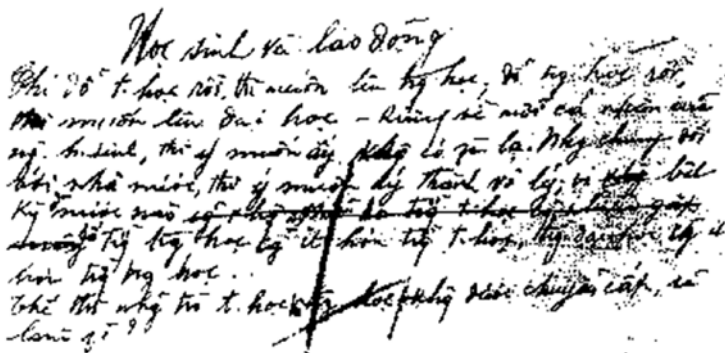 Học sinh và lao động
Khi đỗ t. học rồi, thì muốn lên trg học, đỗ trg học rồi,
thì muốn lên đại học – Riêng về mỗi cá nhân của
ng h. sinh, thì ý muốn ấy khg có gì lạ. Nhg chung đối
với nhà nước, thì ý muốn ấy thành vô lý, vì bất
kỳ nước nào
trg học cg ít hơn t. học, đại học cg ít
hơn trg học.
Thế thì nhg trò t. học, trg học khg được chuyển cấp, sẽ
làm gì?